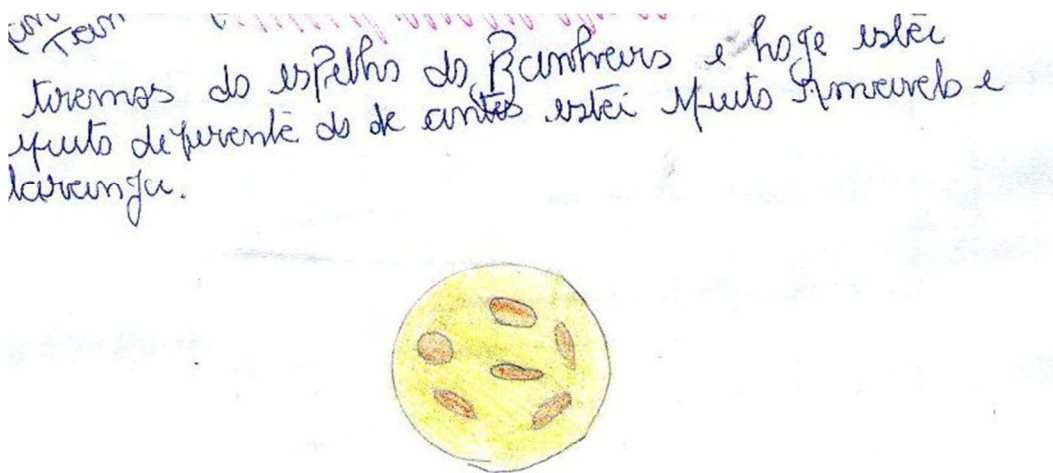 tiremos do espelho do Banheiro e hoge está
muito diferente do de antes está muito Amarelo e
laranja.